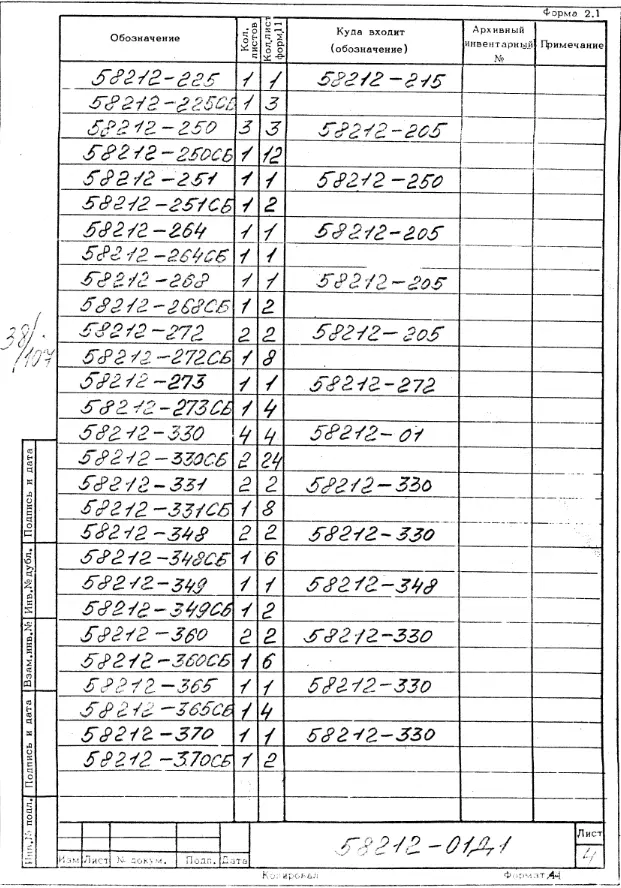 Форма 2.1
Обозначение Кол. листов Кол. лист форм. 11 Куда входит (обозначение) Архивный инвентарный № Примечание
58212-225 1 1 58212-215
58212-225СБ 1 3
58212-250 3 3 58212-205
58212-250СБ 1 12
58212-251 1 1 58212-250
58212-251СБ 1 2
58212-264 1 1 58212-205
58212-264СБ 1 1
58212-268 1 1 58212-205
58212-268СБ 1 2
58212-272 2 2 58212-205
58212-272СБ 1 8
58212-273 1 1 58212-272
58212-273СБ 1 4
58212-330 4 4 58212-01
58212-330СБ 2 24
58212-331 2 2 58212-330
58212-331СБ 1 8
58212-348 2 2 58212-330
58212-348СБ 1 6
58212-349 1 1 58212-348
58212-349СБ 1 2
58212-360 2 2 58212-330
58212-360СБ 1 6
58212-365 1 1 58212-330
58212-365СБ 1 4
58212-370 1 1 58212-330
58212-370СБ 1 2
38/107
Подпись и дата
Инв.№ дубл.
Взам.инв.№
Подпись и дата
Инв.№ подл.
Изм Лист № докум. Подп. Дата
58212-01Д1
Лист
4
Копировал Формат А4